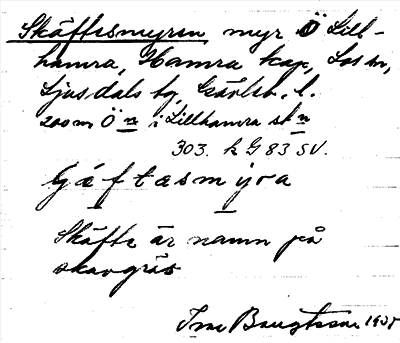 Skäftesmyren myr Ö Lill-
hamra, Hamra kap, Los sn,
Ljusdals tg, Gävleb. l.
200m Ö n i Lillhamra st n
303. k G 83 SV.
G á f t a s m y r a
Skäfte är namn på
skavgräs
Bengtsson 1935